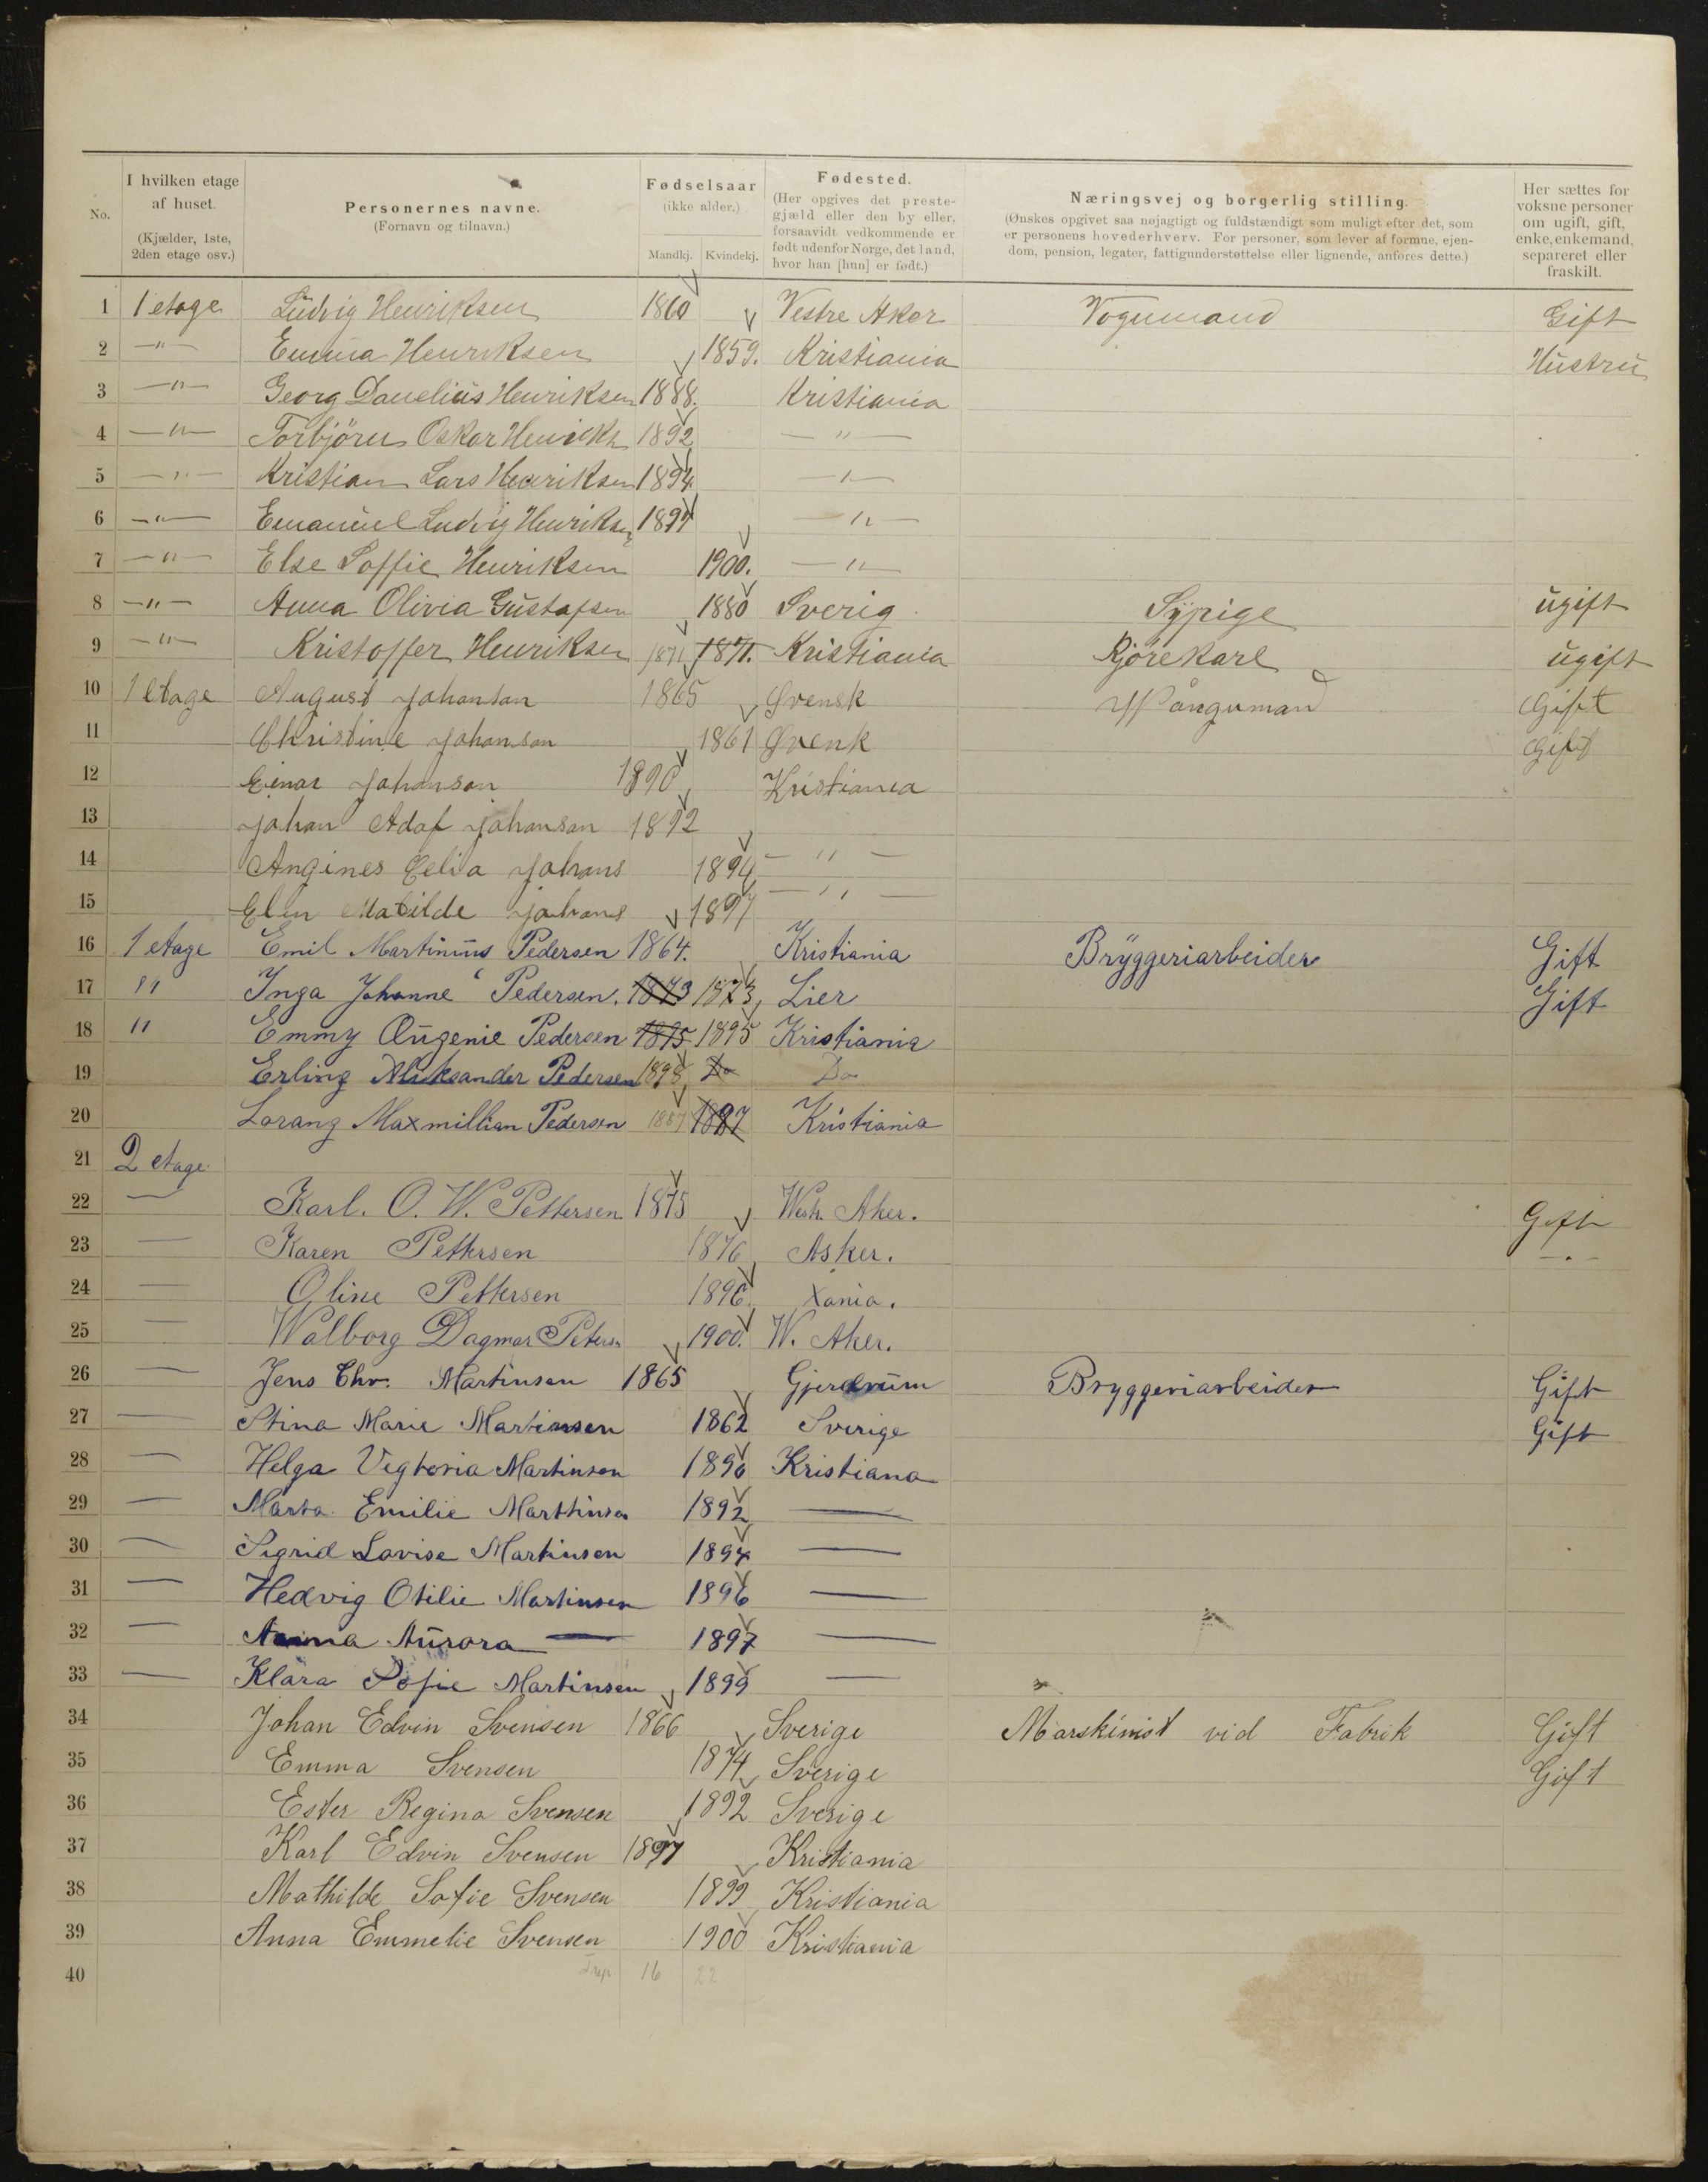 No. I hvilken etage af huset. (Kjælder, 1ste, 2den etage osv.) Personernes navne. (Fornavn og tilnavn.) Fødselsaar (ikke alder.) Mandkj. Kvindekj. Fødested. (Her opgives det prestegjæld eller den by eller, forsaavidt vedkommende er født udenfor Norge, det land, hvor han [hun] er født.) Næringsvej og borgerlig stilling. (Ønskes opgivet saa nøjagtigt og fuldstændigt som muligt efter det, som er personens hovederhverv. For personer, som lever af formue, ejendom, pension, legater, fattigunderstøttelse eller lignende, anføres dette.) Her sættes for voksne personer om ugift, gift, enke, enkemand, separeret eller fraskilt.
1 1 etage Ludvig Henriksen 1860 Vestre Aker Vognmand Gift
2 —"— Emma Henriksen 1859. Kristiania Hustru
3 —"— Georg Danelius Henriksen 1888. Kristiania
4 —"— Torbjörn Oskar Henriks 1892 —"—
5 —"— Kristian Lars Henriksen 1894 —"—
6 —"— Emanuel Ludvig Henriksen 1897 —"—
7 —"— Else Soffie Henriksen 1900. —"—
8 —"— Anna Olivia Gustafsen 1880 Sverig Sypige ugift
9 —"— Kristoffer Henriksen 1871 1871. Kristiania Kjörekarl ugift
10 1 Etage August Johansan 1865 Svensk Vånguman Gift
11 Christine Johanson 1861 Svenk Gift
12 Einar Johanson 1890 Kristiania
13 Johan Adof Johanson 1892
14 Angines Celia Johans 1894 — " —
15 Elin Matilde Johans 1897 — " —
16 1 etage Emil Martinius Pedersen 1864. Kristiania Bryggeriarbeider Gift
17 " Inga Johanne Pedersen. 1873 1873 Lier Gift
18 " Emmy Eugenie Pedersen 1895 1895 Kristiania
19 Erling Aleksander Pedersen 1898 Do Do
20 Lorang Maxmillian Pedersen 1887 1887 Kristiania
21 2 etage
22 — Karl. O. W. Pettersen 1875 Westr. Aker. Gift
23 — Karen Pettersen 1876 Asker. —"—
24 — Oline Pettersen 1896. Xania.
25 — Walborg Dagmar Peters 1900. W. Aker.
26 — Jens Chr. Martinsen 1865 Gjerdrum Bryggeriarbeider Gift
27 — Stina Marie Martinsen 1862 Sverige Gift
28 — Helga Vigtoria Martinsen 1890 Kristiana
29 — Marta Emilie Marttinsen 1892 —
30 — Sigrid Lovise Martinsen 1894 —
31 — Hedvig Otilie Martinsen 1896 —
32 — Anna Aurora — 1897 —
33 — Klara Sofie Martinsen 1899 —
34 Johan Edvin Svensen 1866 Sverige Marskinist vid Fabrik Gift
35 Emma Svensen 1874 Sverige Gift
36 Ester Regina Svensen 1892 Sverige
37 Karl Edvin Svensen 1897 Kristiania
38 Mathilde Sofie Svensen 1899 Kristiania
39 Anna Emmelie Svensen 1900 Kristiania
40 16 22